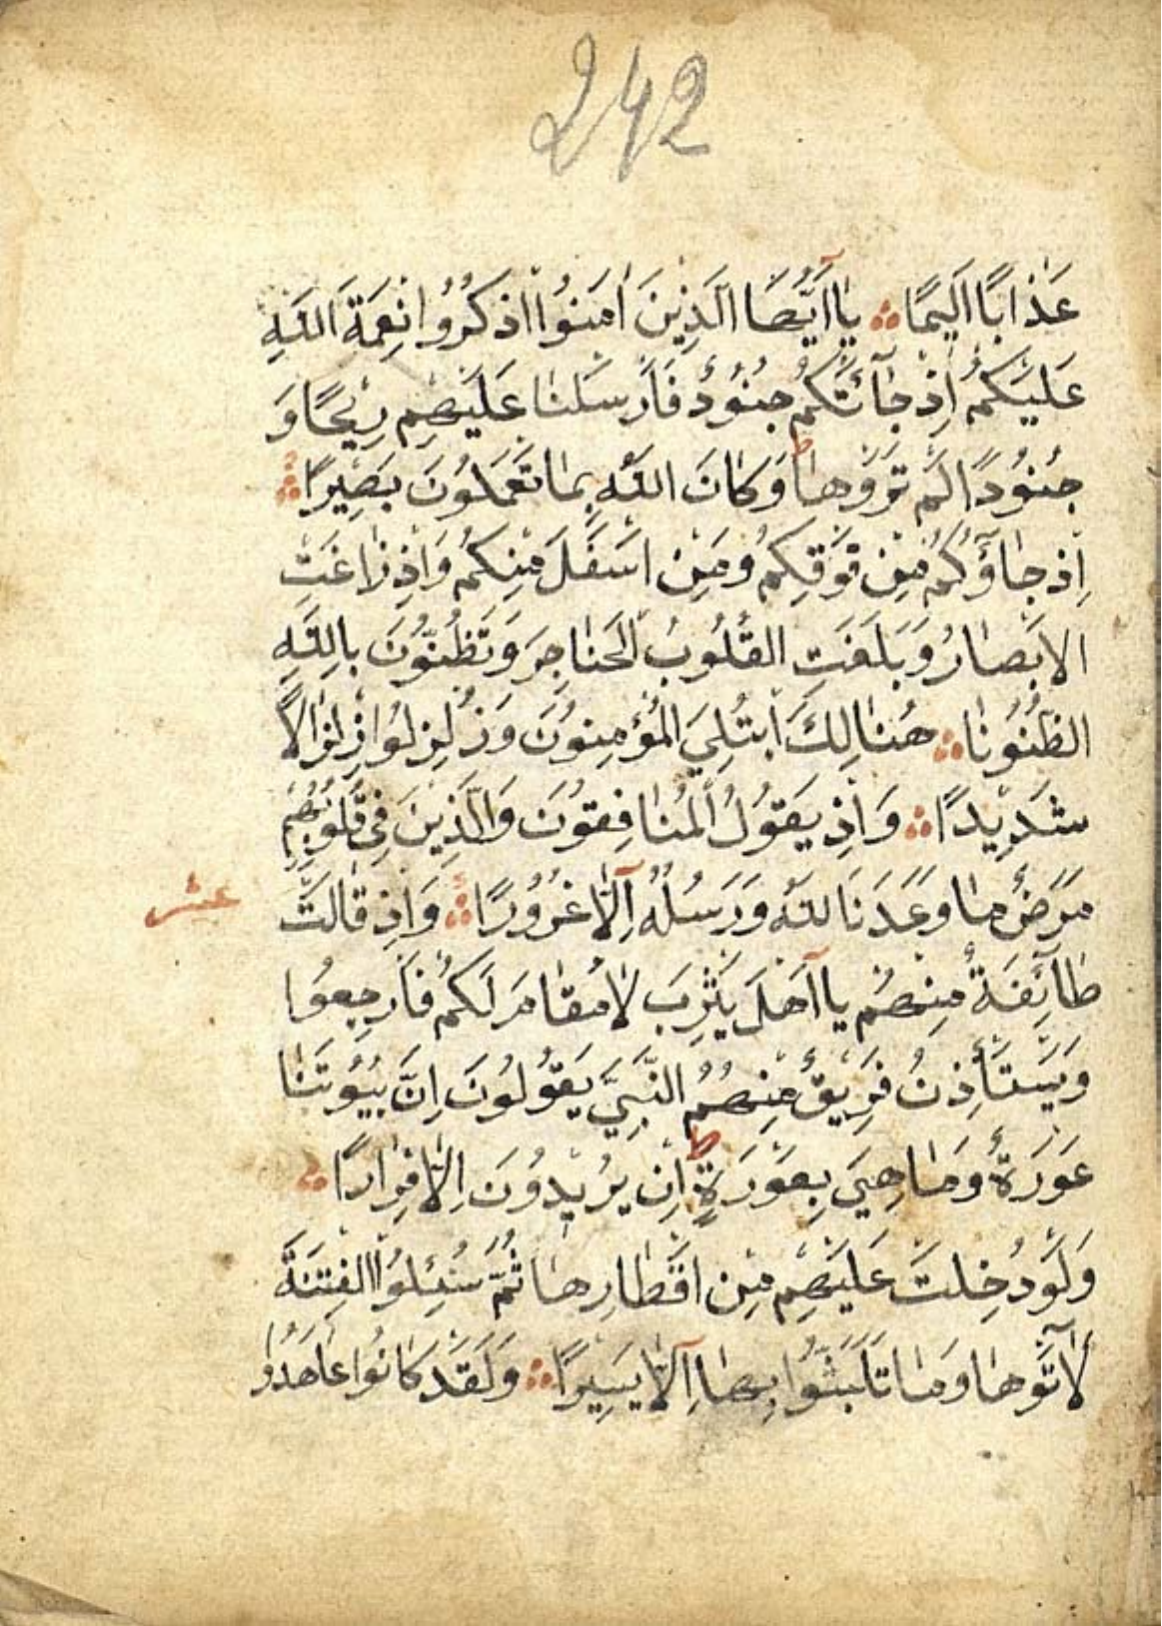 242
عَذَابًا اَلِيمًا ۞ يَا اَيُّهَا الَّذِينَ اٰمَنُوا اذْكُرُوا نِعْمَةَ اللّٰهِ
عَلَيْكُمْ اِذْ جَآئَتْكُمْ جُنُودٌ فَاَرْسَلْنَا عَلَيْهِمْ رِيحًا وَ
جُنُودًا لَمْ تَرَوْهَا ط وَكَانَ اللّٰهُ بِمَا تَعْمَلُونَ بَصِيرًا ۞
اِذْ جَاؤُكُمْ مِنْ فَوْقِكُمْ وَمِنْ اَسْفَلَ مِنْكُمْ وَاِذْ زَاغَتِ
الْاَبْصَارُ وَبَلَغَتِ الْقُلُوبُ الْحَنَاجِرَ وَتَظُنُّونَ بِاللّٰهِ
الظُّنُونَا ۞ هُنَالِكَ ابْتُلِيَ الْمُؤْمِنُونَ وَزُلْزِلُوا زِلْزَالًا
شَدِيدًا ۞ وَاِذْ يَقُولُ الْمُنَافِقُونَ وَالَّذِينَ فِي قُلُوبِهِمْ
مَرَضٌ مَا وَعَدَنَا اللّٰهُ وَرَسُلُهُ اِلَّا غُرُورًا ۞ وَاِذْ قَالَتْ
عشر
طَآئِفَةٌ مِنْهُمْ يَا اَهْلَ يَثْرِبَ لَا مُقَامَ لَكُمْ فَارْجِعُوا
وَيَسْتَأْذِنُ فَرِيقٌ مِنْهُمُ النَّبِيَّ يَقُولُونَ اِنَّ بُيُوتَنَا
عَوْرَةٌ وَمَا هِيَ بِعَوْرَةٍ ط اِنْ يُرِيدُونَ اِلَّا فِرَارًا ۞
وَلَوْ دُخِلَتْ عَلَيْهِمْ مِنْ اَقْطَارِهَا ثُمَّ سُئِلُوا الْفِتْنَةَ
لَاٰتَوْهَا وَمَا تَلَبَّثُوا بِهَا اِلَّا يَسِيرًا ۞ وَلَقَدْ كَانُوا عَاهَدُوا